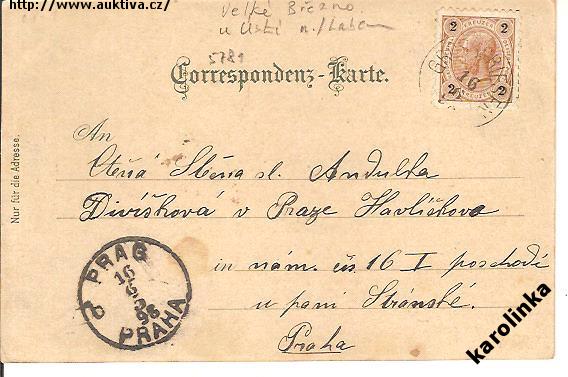 http://www.auktiva.cz/
Velké Březno
u Ústí n./Labem
5789
2 KREUZER 2
2 2
Correspondenz-Karte.
16
Nur für die Adresse.
An
Ctěná Slečna sl. Andulka
Divíšková v Praze Havlíčkovo
in nám. čís 16 I poschodí
u paní Stránské.
Praha
PRAG
16
96
2
PRAHA
karolinka